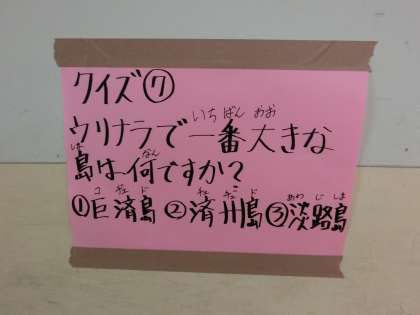 クイズ⑦
いちばん おお
ウリナラで一番大きな
しま なん
島は何ですか?
コヂェド チェヂュド あわじしま
①巨済島 ②済州島 ③淡路島